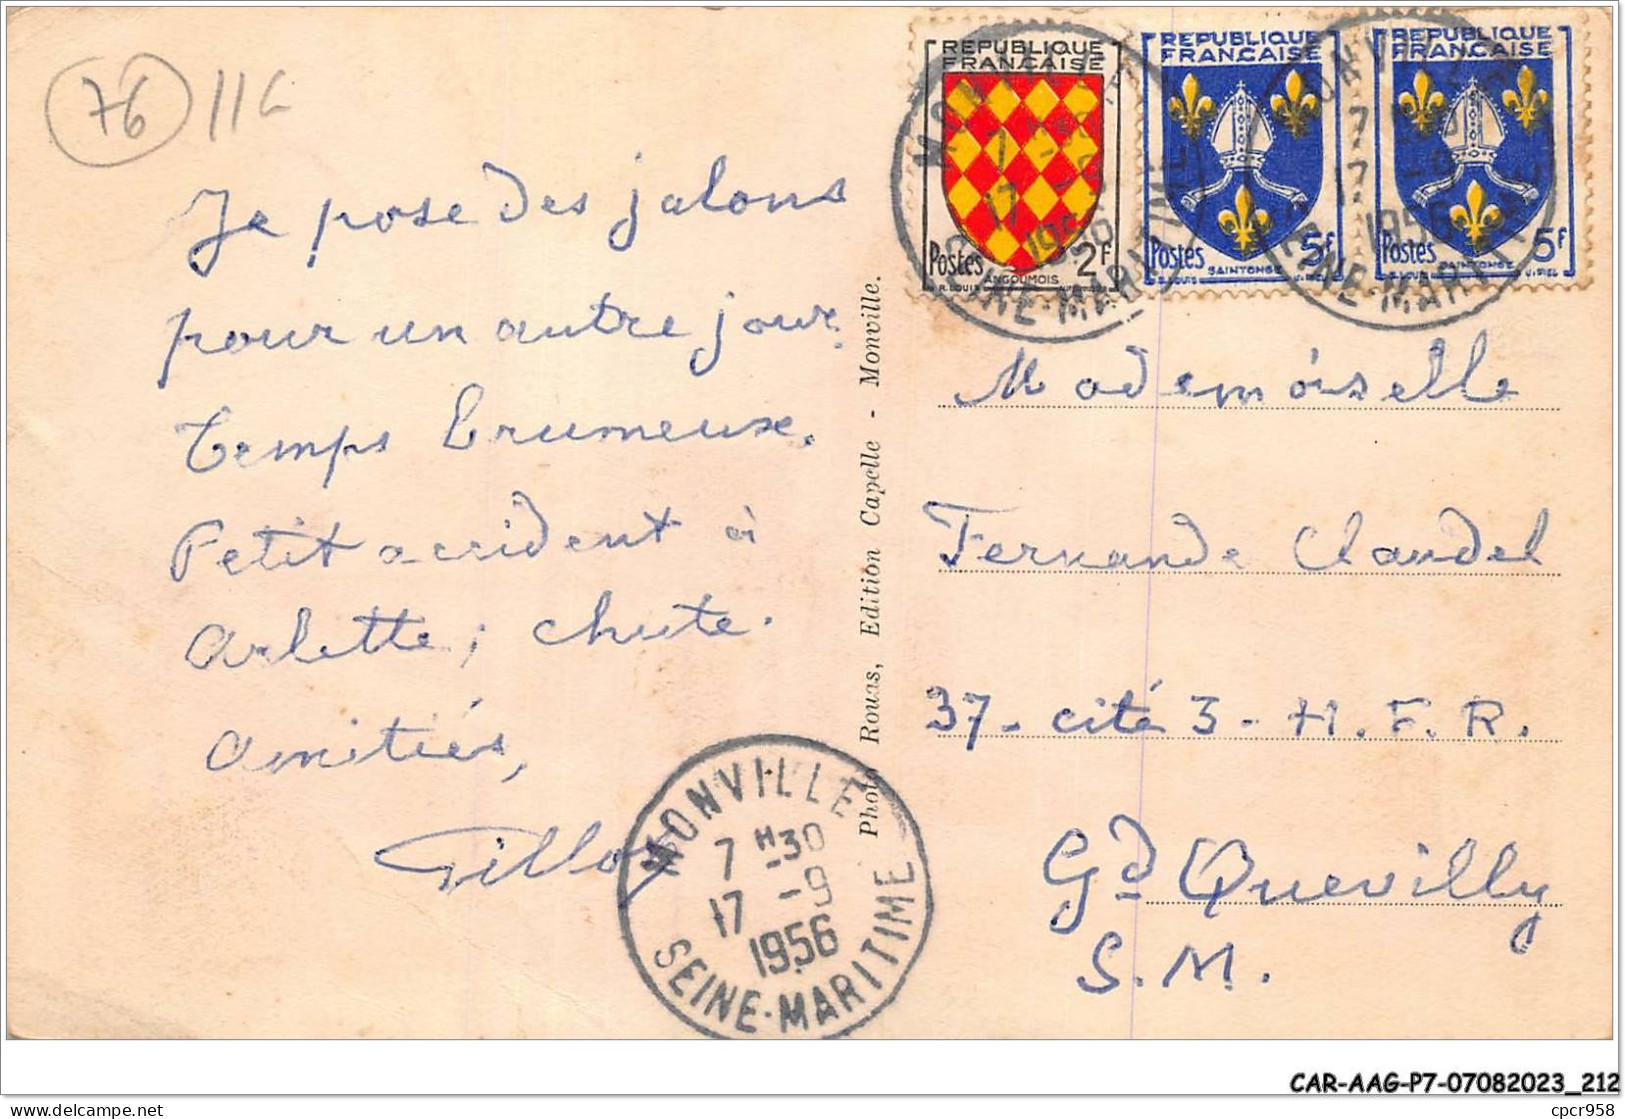 76 116
Je pose des jalons
pour un autre jour.
Temps brumeux.
Petit accident à
Arlette ; chute.
Amitiés,
Gilloy
MONVILLE
7 H30
17 -9
1956
SEINE-MARITIME
Photo Rouas, Edition Capelle - Monville.
REPUBLIQUE
FRANÇAISE
Postes 2F
ANGOUMOIS
REPUBLIQUE
FRANÇAISE
Postes 5F
SAINTONGE
REPUBLIQUE
FRANÇAISE
Postes 5F
SAINTONGE
Mademoiselle
Fernande Claudel
37 - cité 3 - H.F.R.
Gd Quevilly
S.M.
CAR-AAG-P7-07082023_212
cpcr958